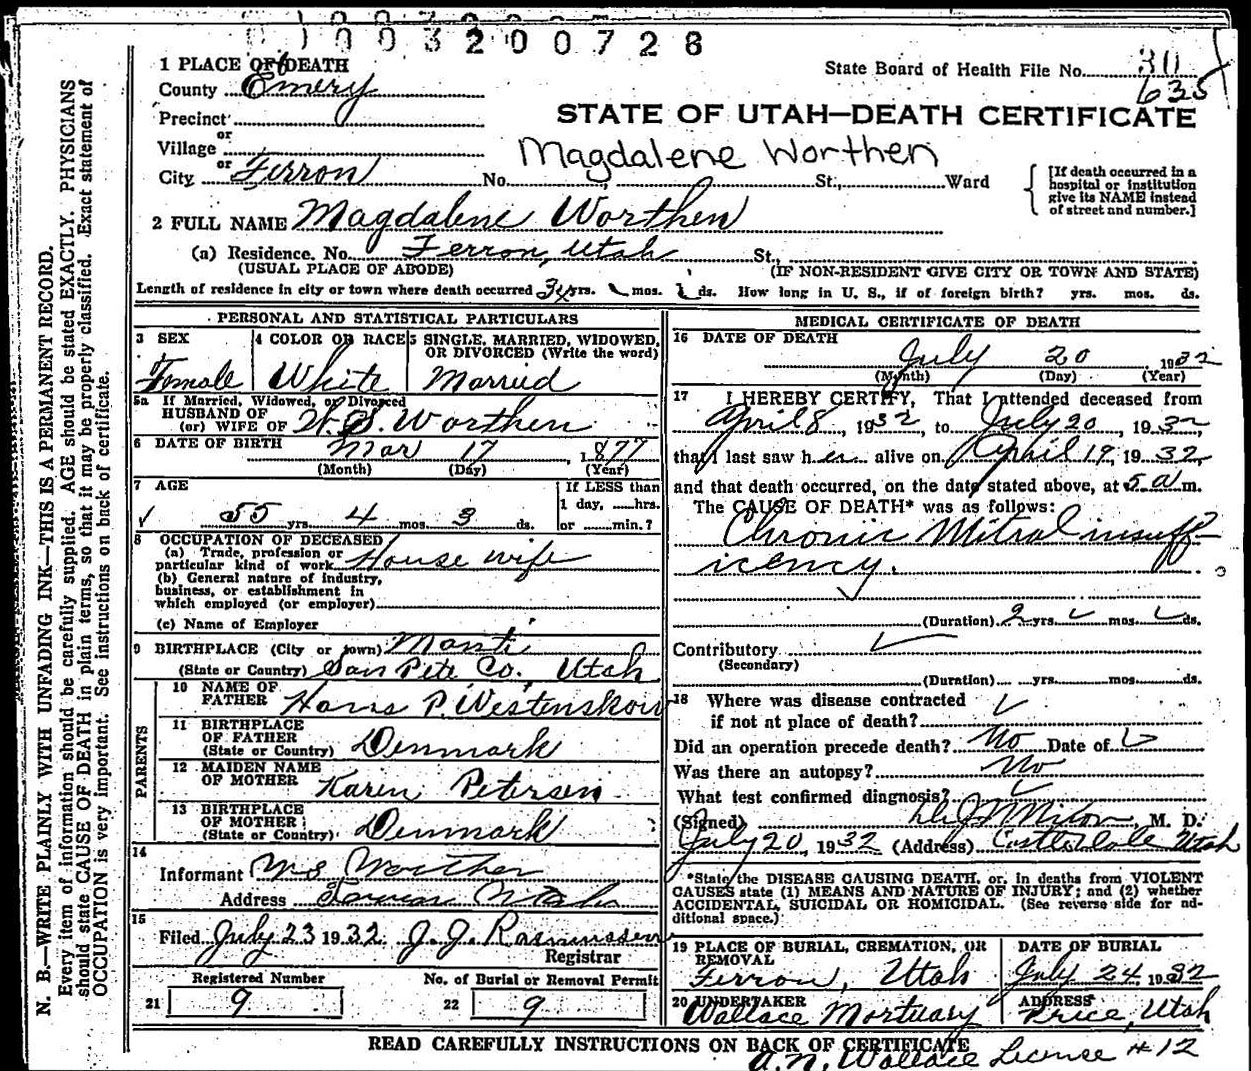 1003200728
1 PLACE OF DEATH
State Board of Health File No. 30
635
County Emery
STATE OF UTAH—DEATH CERTIFICATE
Precinct
or
Village
Magdalene Worthen
or
City Ferron No. St., Ward
[If death occurred in a hospital or institution give its NAME instead of street and number.]
2 FULL NAME Magdalene Worthen
(a) Residence. No. Ferron, Utah St.,
(USUAL PLACE OF ABODE) (IF NON-RESIDENT GIVE CITY OR TOWN AND STATE)
Length of residence in city or town where death occurred yrs. mos. ds. How long in U. S., if of foreign birth? yrs. mos. ds.
PERSONAL AND STATISTICAL PARTICULARS
3 SEX 4 COLOR OR RACE 5 SINGLE, MARRIED, WIDOWED, OR DIVORCED (Write the word)
Female White Married
5a If Married, Widowed, or Divorced
HUSBAND OF
(or) WIFE OF W. S. Worthen
6 DATE OF BIRTH Mar 17 1877
(Month) (Day) (Year)
7 AGE If LESS than
1 day, ......hrs.
55 yrs. 4 mos. 3 ds. or ......min.?
8 OCCUPATION OF DECEASED
(a) Trade, profession or
particular kind of work House wife
(b) General nature of industry,
business, or establishment in
which employed (or employer)
(c) Name of Employer
9 BIRTHPLACE (City or town) Manti
(State or Country) San Pete Co., Utah
PARENTS
10 NAME OF
FATHER Hans P. Westenskow
11 BIRTHPLACE
OF FATHER
(State or Country) Denmark
12 MAIDEN NAME
OF MOTHER Karen Petersen
13 BIRTHPLACE
OF MOTHER
(State or Country) Denmark
14
Informant W S Worthen
Address Ferron Utah
15
Filed July 23 1932 J. J. Rasmussen
Registrar
Registered Number No. of Burial or Removal Permit
21 9 22 9
MEDICAL CERTIFICATE OF DEATH
16 DATE OF DEATH
July 20 1932
(Month) (Day) (Year)
17 I HEREBY CERTIFY, That I attended deceased from
April 8, 1932, to July 20, 1932,
that I last saw her alive on April 19, 1932,
and that death occurred, on the date stated above, at 5 a m.
The CAUSE OF DEATH* was as follows:
Chronic Mitral insuff-
icency.
(Duration) 2 yrs. mos. ds.
Contributory
(Secondary)
(Duration) yrs. mos. ds.
18 Where was disease contracted
if not at place of death?
Did an operation precede death? No Date of
Was there an autopsy? No
What test confirmed diagnosis?
(Signed) M. D.
July 20, 1932 (Address) Castle Dale Utah
*State the DISEASE CAUSING DEATH, or, in deaths from VIOLENT
CAUSES state (1) MEANS AND NATURE OF INJURY; and (2) whether
ACCIDENTAL, SUICIDAL OR HOMICIDAL. (See reverse side for ad-
ditional space.)
19 PLACE OF BURIAL, CREMATION, OR REMOVAL DATE OF BURIAL
Ferron, Utah July 24, 1932
20 UNDERTAKER ADDRESS
Wallace Mortuary Price, Utah
READ CAREFULLY INSTRUCTIONS ON BACK OF CERTIFICATE
A. N. Wallace License #12
N. B.—WRITE PLAINLY WITH UNFADING INK—THIS IS A PERMANENT RECORD.
Every item of information should be carefully supplied. AGE should be stated EXACTLY. PHYSICIANS
should state CAUSE OF DEATH in plain terms, so that it may be properly classified. Exact statement of
OCCUPATION is very important. See instructions on back of certificate.